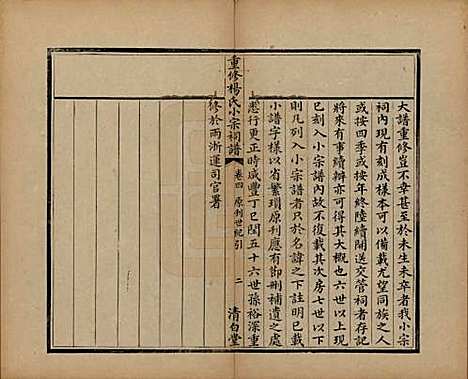 大譜重修豈不幸甚至於未生未卒者我小宗
祠內現有刻成樣本可以備載尤望同族之人
或按四季或按年終陸續開送交管祠者存記
將來有事續辦亦可得其大概也六世以上
已刻入小宗譜內故不復載其次房七世以下
則凡列入小宗譜者只於名諱之下註明已載
小譜字樣以省繁瑣原刊應有節刪補遺之處
悉行更正時咸豐丁巳閏五十六世孫裕深重
修於兩浙運司官署
重修楊氏小宗祠譜
卷四 原刊世紀引
二
清白堂